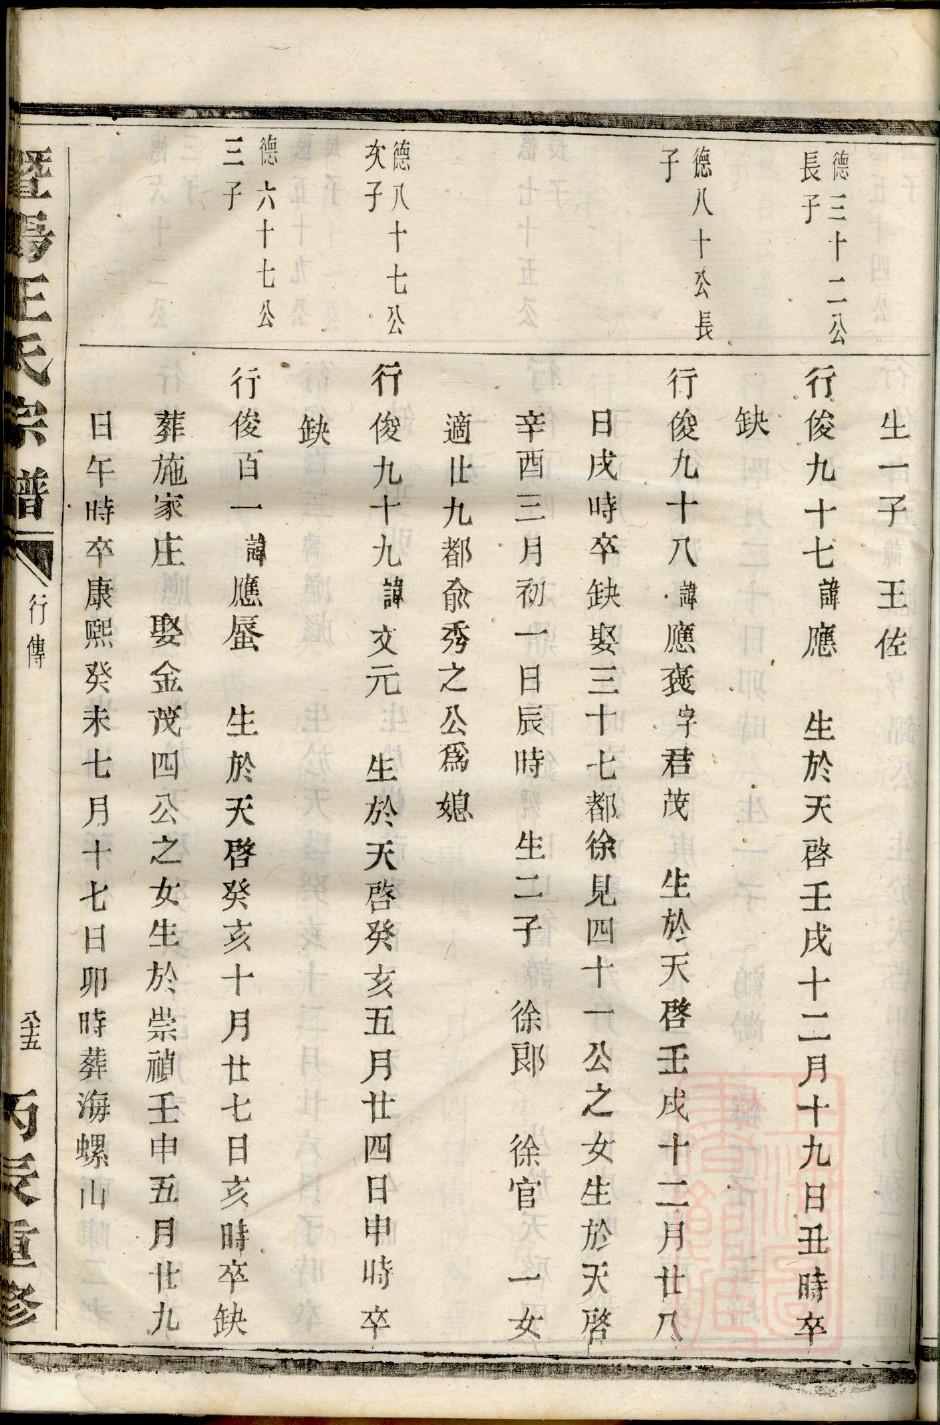 生一子 王佐
德三十二公
長子
行俊九十七諱應 生於天啓壬戌十二月十九日丑時卒
缺
德八十公長
子
行俊九十八諱應褒字君茂 生於天啓壬戌十二月廿八
日戌時卒缺娶三十七都徐見四十一公之女生於天啓
辛酉三月初一日辰時 生二子 徐郎 徐官 一女
適廿九都俞秀之公爲媳
德八十七公
次子
行俊九十九諱文元 生於天啓癸亥五月廿四日申時卒
缺
德六十七公
三子
行俊百一諱應蜃 生於天啓癸亥十月廿七日亥時卒缺
葬施家庄 娶金茂四公之女生於崇禎壬申五月廿九
日午時卒康熙癸未七月十七日卯時葬海螺山
暨陽王氏宗譜
行傳
八十五
丙辰重修